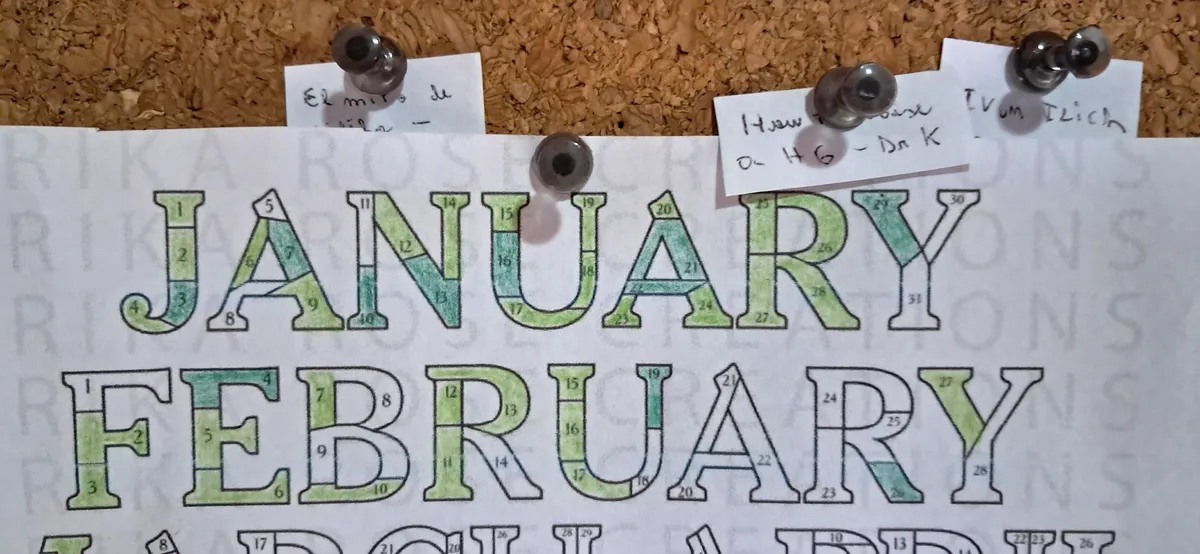 El de
How
on H G - Dr K
Ivan Ilich
RIKA ROSE CREATIONS
JANUARY
1 2 3 4 5 6 7 8 9 10 11 12 13 14 15 16 17 18 19 20 21 22 23 24 25 26 27 28 29 30 31
FEBRUARY
1 2 3 4 5 6 7 8 9 10 11 12 13 14 15 16 17 18 19 20 21 22 23 24 25 26 27 28
8 17 21 20 26 28 29 10 13 22 23 26